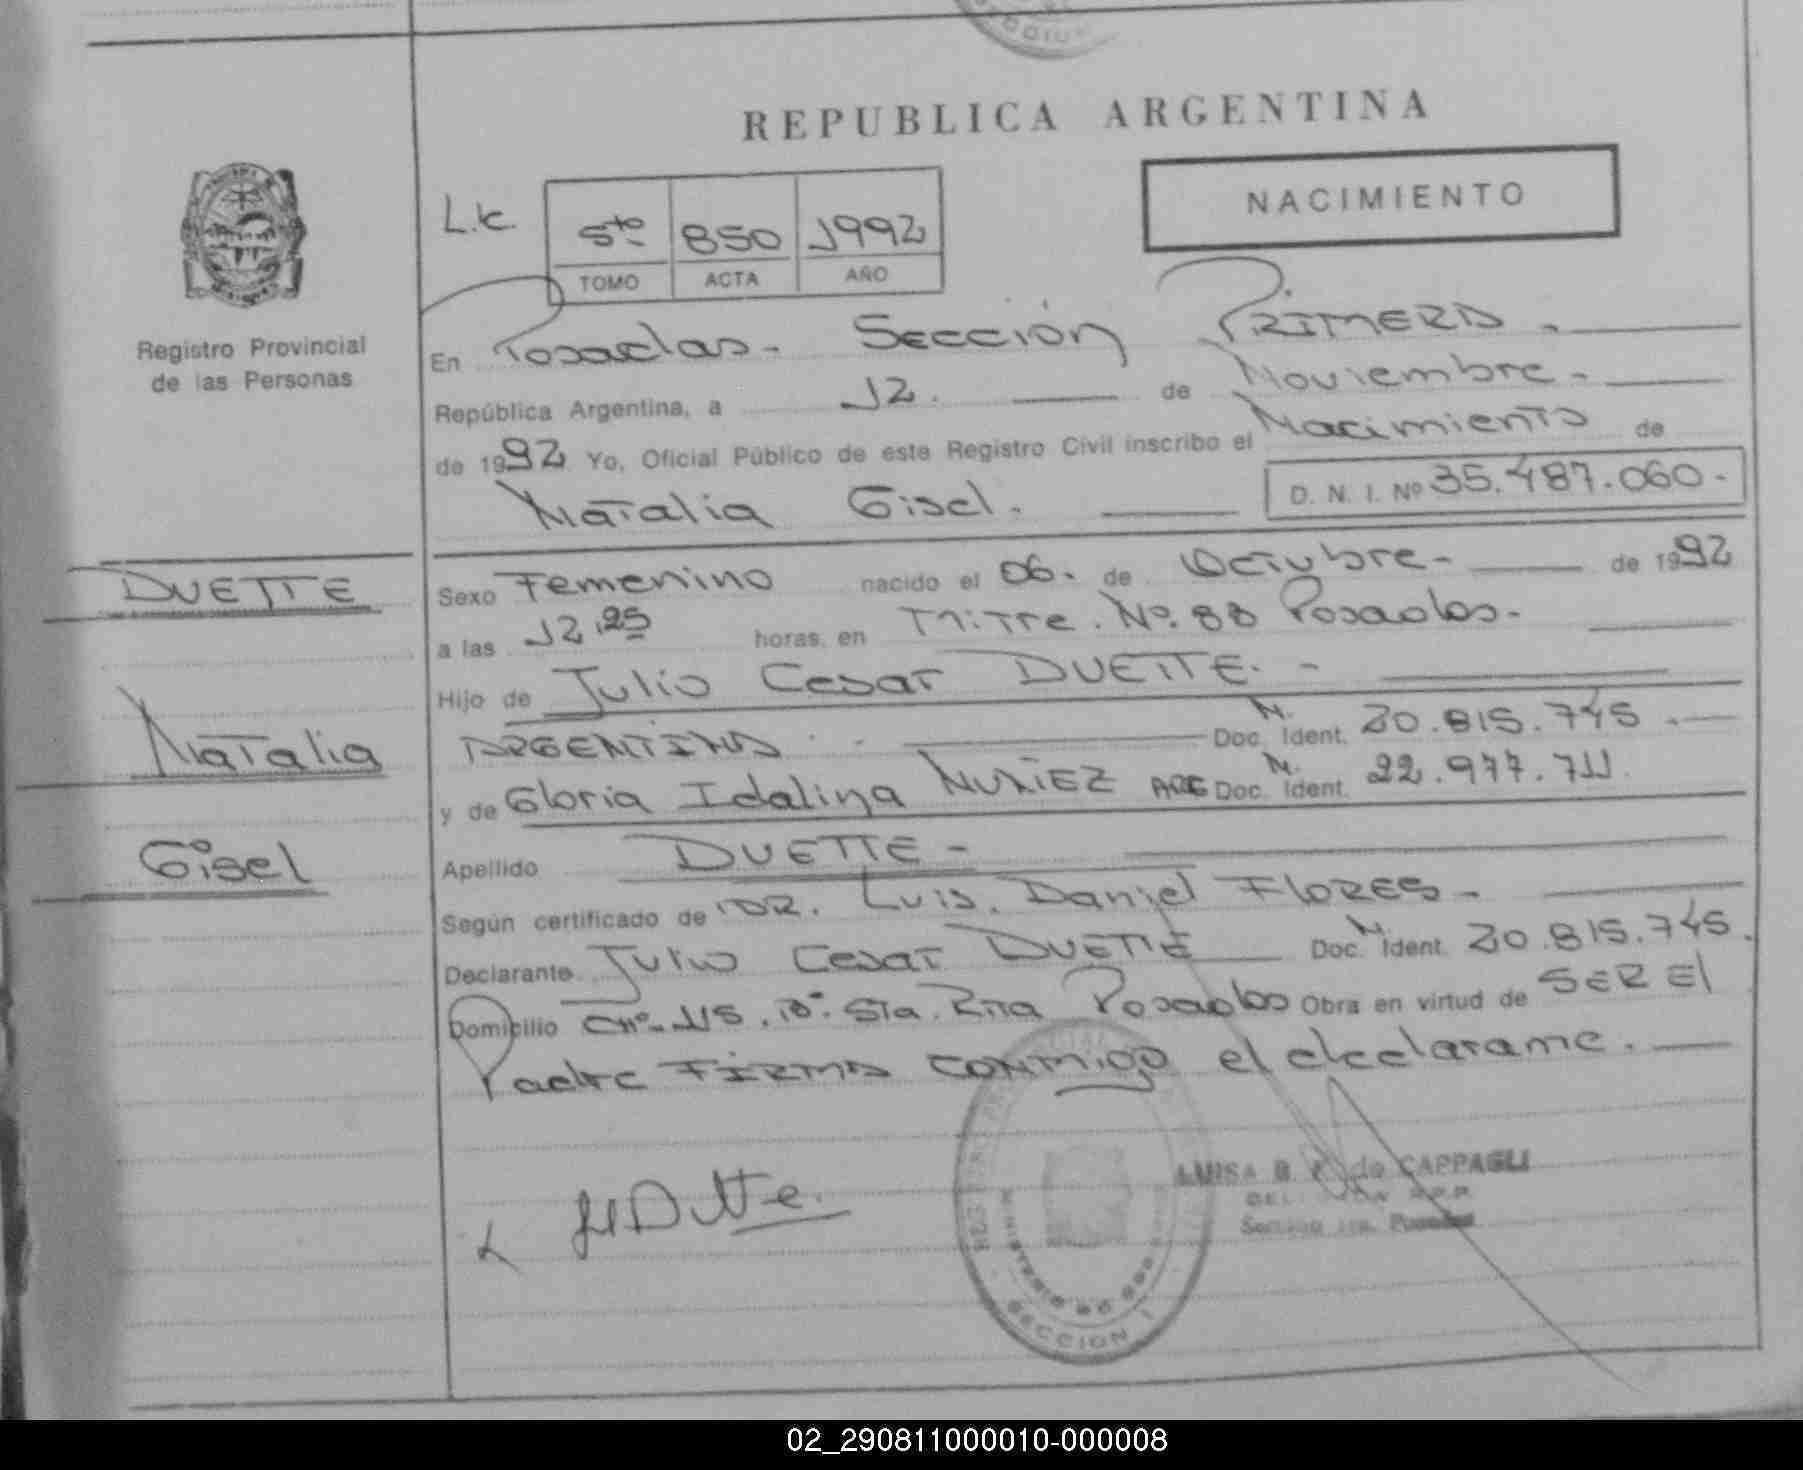 REPUBLICA ARGENTINA
NACIMIENTO
L.C.
5to 850 1992
TOMO ACTA AÑO
Registro Provincial
de las Personas
En Posadas - Sección Primera.
República Argentina, a 12. de Noviembre -
de 1992 Yo, Oficial Público de este Registro Civil inscribo el Nacimiento de
Natalia Gisel. D. N. I. Nº 35.487.060.-
DUETTE
Sexo Femenino nacido el 06. de Octubre - de 1992
a las 12,25 horas, en Mitre. Nº. 88 Posadas.
Hijo de Julio Cesar DUETTE. -
Natalia
ARGENTINA - Doc. N. Ident. 20.815.745.
y de Gloria Idalina NUÑEZ ARG Doc. N. Ident. 22.977.711.
Gisel
Apellido DUETTE -
Según certificado de DR. Luis. Daniel FLORES -
Declarante Julio Cesar DUETTE Doc. N. Ident. 20.815.745.
Domicilio CH°. 115. B°. Sta. Rita Posadas Obra en virtud de SER El
Padre FIRMA CONMIGO el declarame.
LUISA B. de CAPPAGLI
Sección 1ra. Posadas
SECCION 1
02_290811000010-000008